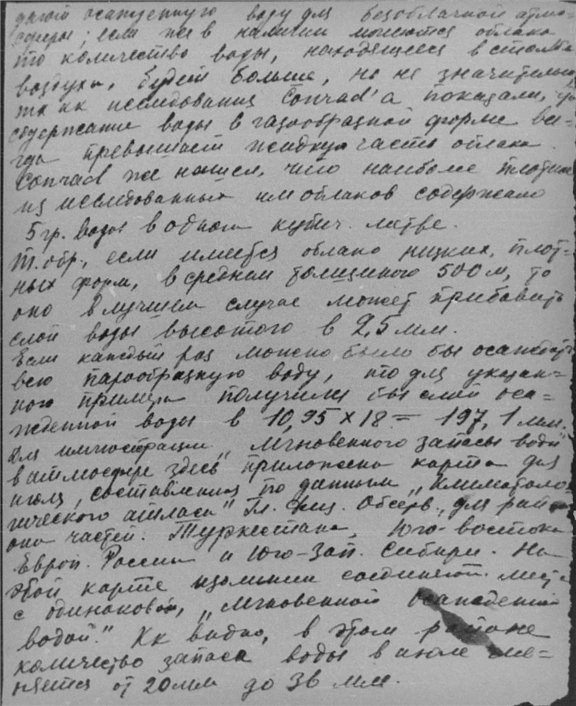 дающей осажденную воду для безоблачной атмо-
сферы; если же в наличии имеются облака
то количество воды, находящееся в столбе
воздуха, будет больше, но не значительно
тк кк исследования Conrad'а показали, что
содержание воды в газообразной форме все-
гда превышает жидкую часть облака.
Conrad же нашел, что наиболее плотные
из исследованных им облаков содержало
5 гр. воды в одном кубич. метре.
Т. обр., если имеется облако низких, плот-
ных форм, в среднем толщиного 500 м, то
оно в лучшем случае может прибавить
слой воды высотого в 2,5 мм.
Если каждый раз можно было бы осаждать
всю парообразную воду, то для указан-
ного примера получился бы слой оса-
жденной воды в 10,95 × 18 = 197,1 мм.
Для иллюстрации „Мгновенного запаса воды"
в атмосфере здесь приложена карта для
июля, составленная по данным „Климатоло-
гического атласа" Гл. Физ. Обсерв., для райо
она частей: Туркестана, Юго-востока
Европ. России и Юго-Зап. Сибири. На
этой карте изолинии соединяют места
с одинаковой, „Мгновенной осажденной
водой." Кк видно, в этом районе
количество запаса воды в июле ме-
няется от 20 мм до 36 мм.